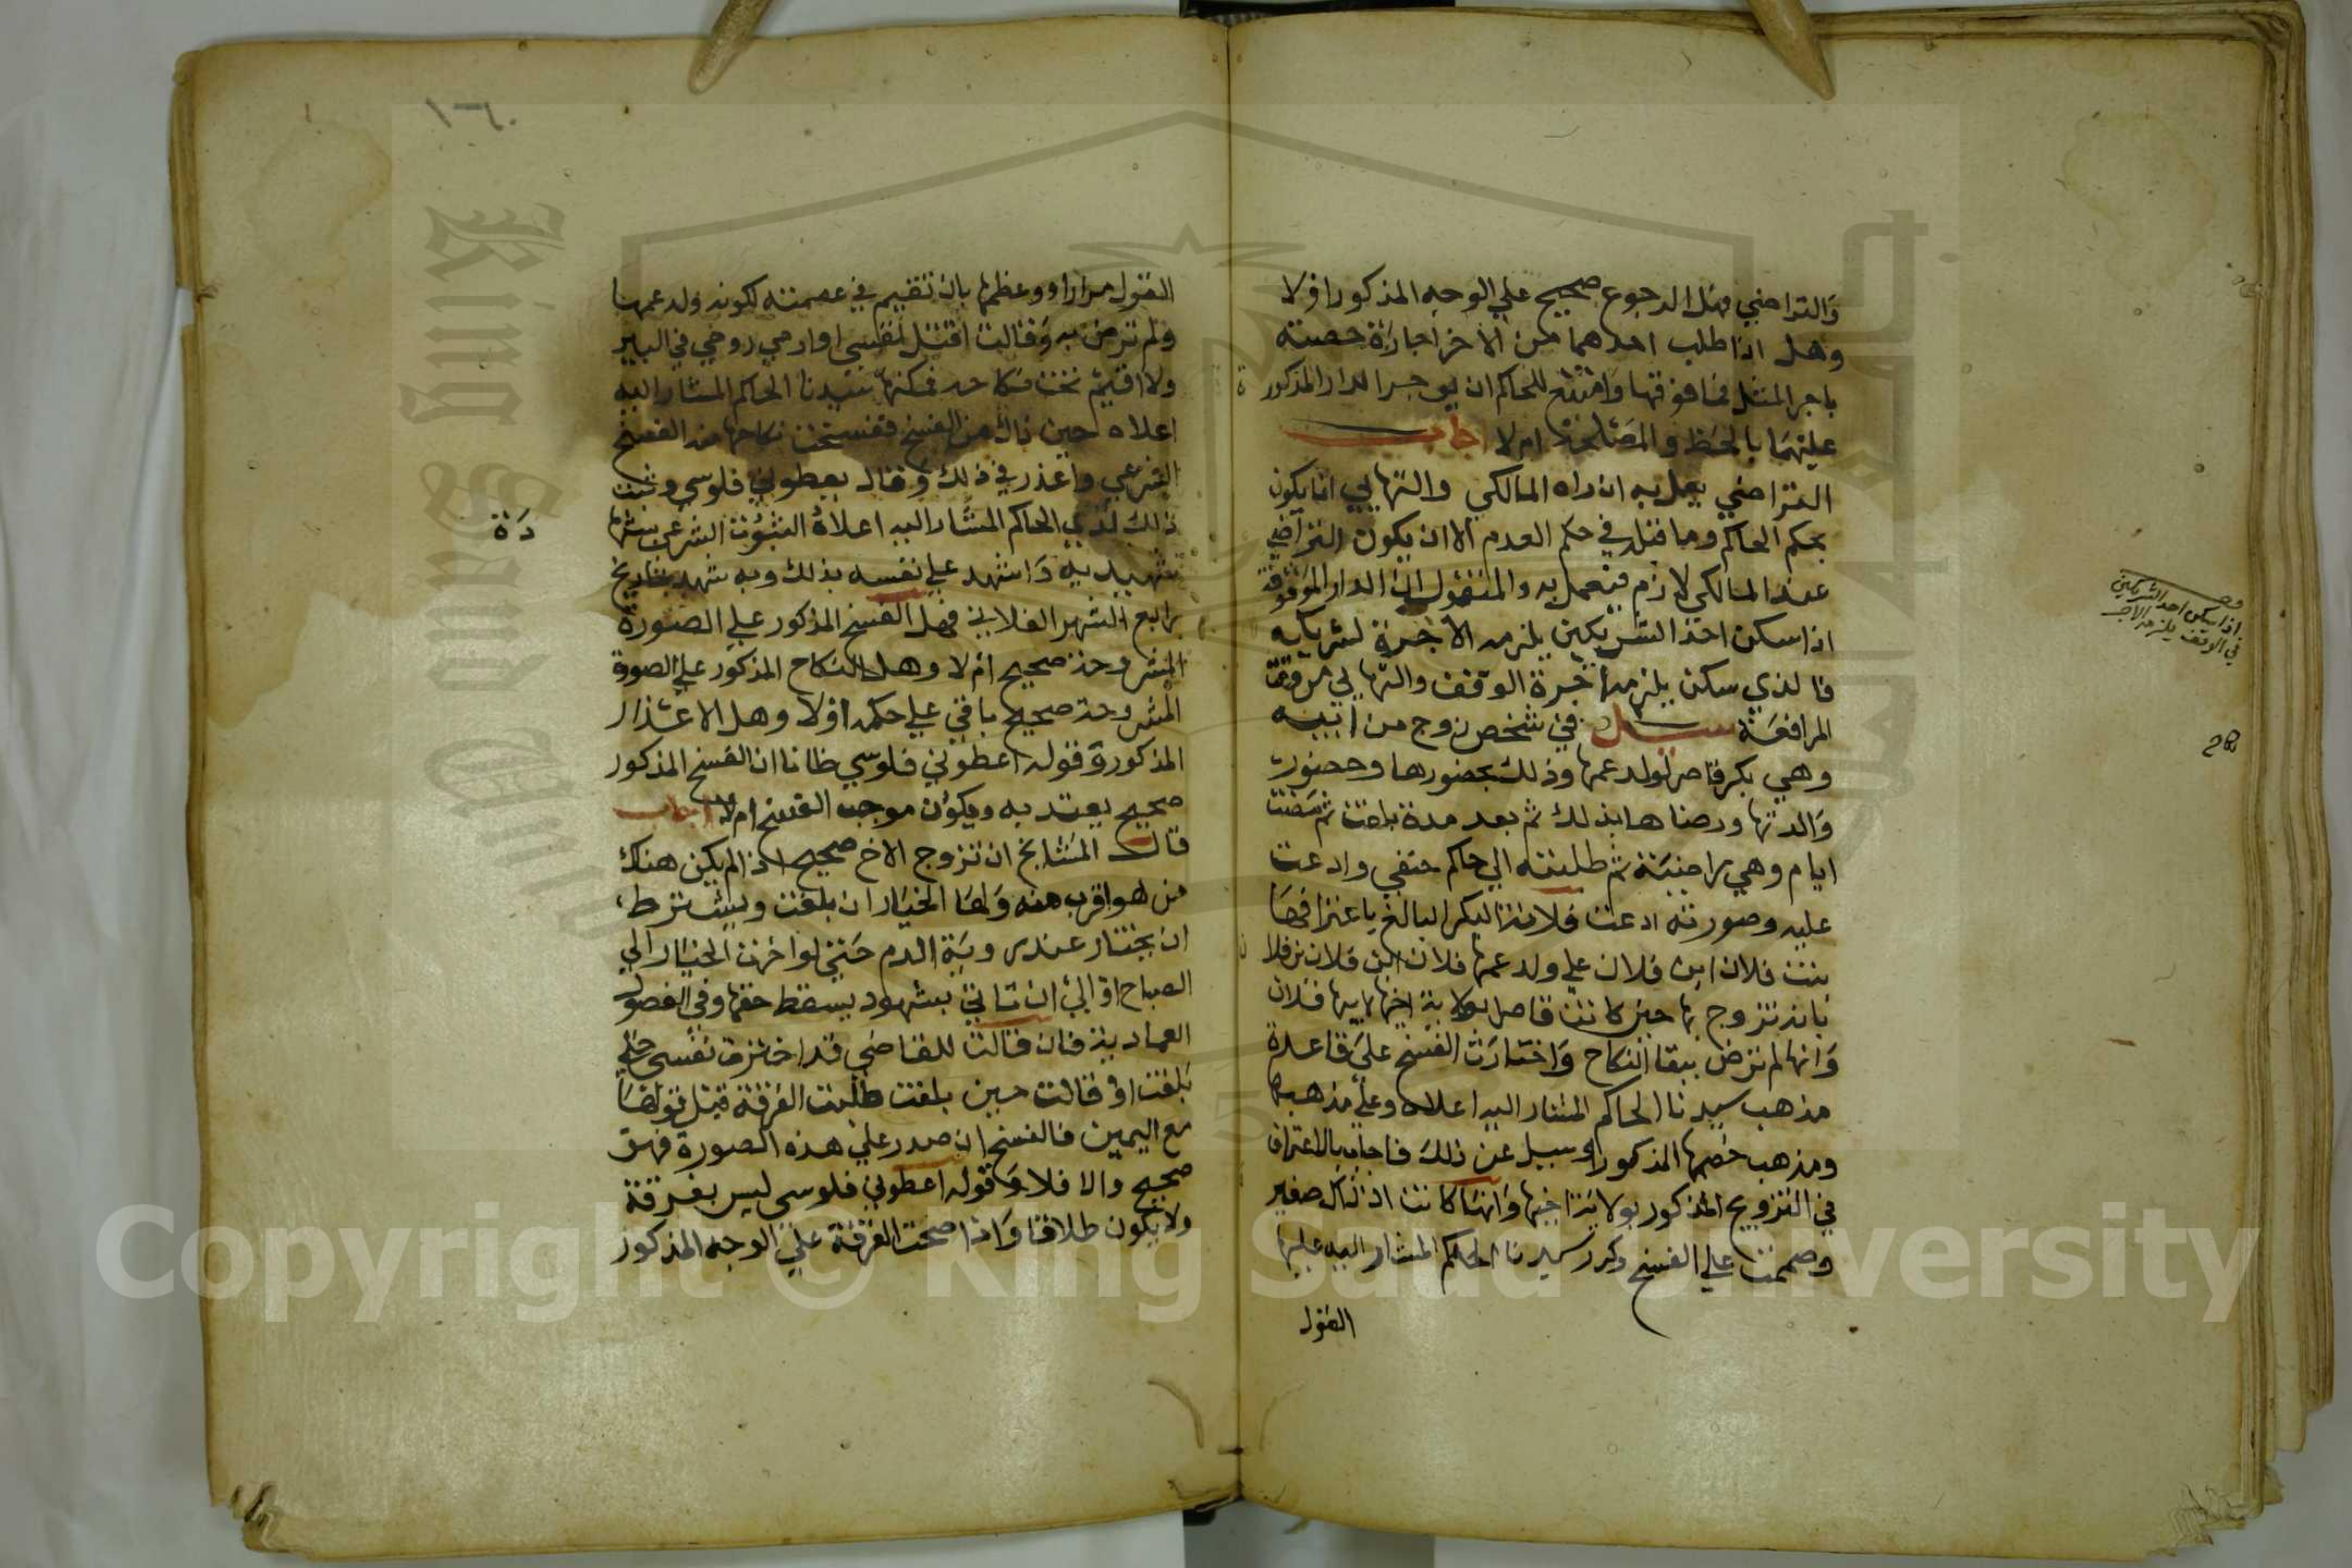 والتراضي فهل الرجوع صحيح علي الوجه المذكور اولا
وهل اذا طلب احدهما من الاخر اجارة حصته
باجر المثل فما فوقها وامتنع للحاكم ان يوجر الدار المذكورة
عليهما بالحظ والمصلحة ام لا اجاب
التراضي يعمل به ان راه المالكي والتهايي انما يكون
بحكم الحاكم وما قبله في حكم العدم الا ان يكون التراضي
عند المالكي لازم فيعمل به والمنقول ان الدار الموقوفة
اذا سكن احد الشريكين يلزمه الاجرة لشريكه
فالذي سكن يلزمه اجرة الوقف والتهايي من وقت
المرافعة سيل في شخص زوج من ابيه
وهي بكر قاصر لولد عمها وذلك بحضورها وحضور
والدتها ورضاها بذلك ثم بعد مدة بلغت ثم مضت
ايام وهي راضية ثم طلبته الي حاكم حنفي وادعت
عليه وصورته ادعت فلانة البكر البالغ باعترافها
بنت فلان ابن فلان علي ولد عمها فلان ابن فلان بن فلان
بانه تزوج بها حين كانت قاصر بولاية اخيها لابيها فلان
وانها لم ترض ببقا النكاح واختارت الفسخ علي قاعدة
مذهب سيدنا الحاكم المشار اليه اعلاه وعلي مذهبها
ومذهب خصمها المذكور وسيل عن ذلك فاجاب بالاعتراف
في التزويج المذكور بولاية اخيها وانها كانت اذ ذاك صغير
وصممت علي الفسخ وكرر سيدنا الحاكم المشار اليه عليها
القول
اذا سكن احد الشريكين
في الوقف يلزمه الاجر
١٦٠
القول مرارا ووعظها بان تقيم في عصمته لكونه ولد عمها
ولم ترض به وقالت اقتل نفسي او ارمي روحي في البير
ولا اقيم تحت نكاحه فمكنها سيدنا الحاكم المشار اليه
اعلاه حين ذاك من الفسخ ففسخت نكاحها منه الفسخ
الشرعي واعذر في ذلك وقال يعطوني فلوسي وثبت
ذلك لدي الحاكم المشار اليه اعلاه الثبوت الشرعي بشهادة
شهيديه واشهد علي نفسه بذلك وبه شهد بتاريخ
رابع الشهر الفلاني فهل الفسخ المذكور علي الصورة
المشروحة صحيح ام لا وهل النكاح المذكور علي الصورة
المشروحة صحيح باقي علي حكمه اولا وهل الاعتذار
المذكور وقوله اعطوني فلوسي ظانا ان الفسخ المذكور
صحيح يعتد به ويكون موجب الفسخ ام لا اجاب
قال المشايخ ان تزوج الاخ صحيح اذا لم يكن هناك
من هو اقرب منه ولها الخيار ان بلغت ويشترط
ان يختار عند روية الدم حتي لو اخرت الخيار الي
الصباح او الي ان تاتي بشهود يسقط حقها وفي الفصول
العمادية فان قالت للقاضي قد اخترت نفسي حين
بلغت او قالت حين بلغت طلبت الفرقة قبل قولها
مع اليمين فالفسخ ان صدر علي هذه الصورة فهو
صحيح والا فلا وقوله اعطوني فلوسي ليس بفرقة
ولا يكون طلاقا واذا صحت الفرقة علي الوجه المذكور
Copyright © King Saud University
King Saud University